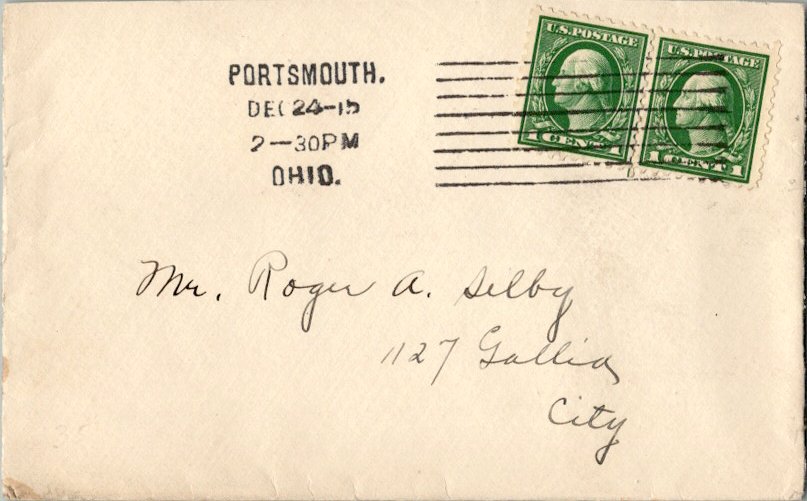 PORTSMOUTH.
DEC 24-15
2-30PM
OHIO.
U.S. POSTAGE
1 CENT 1
U.S. POSTAGE
1 CENT 1
Mr. Roger A. Selby
1127 Gallia
City